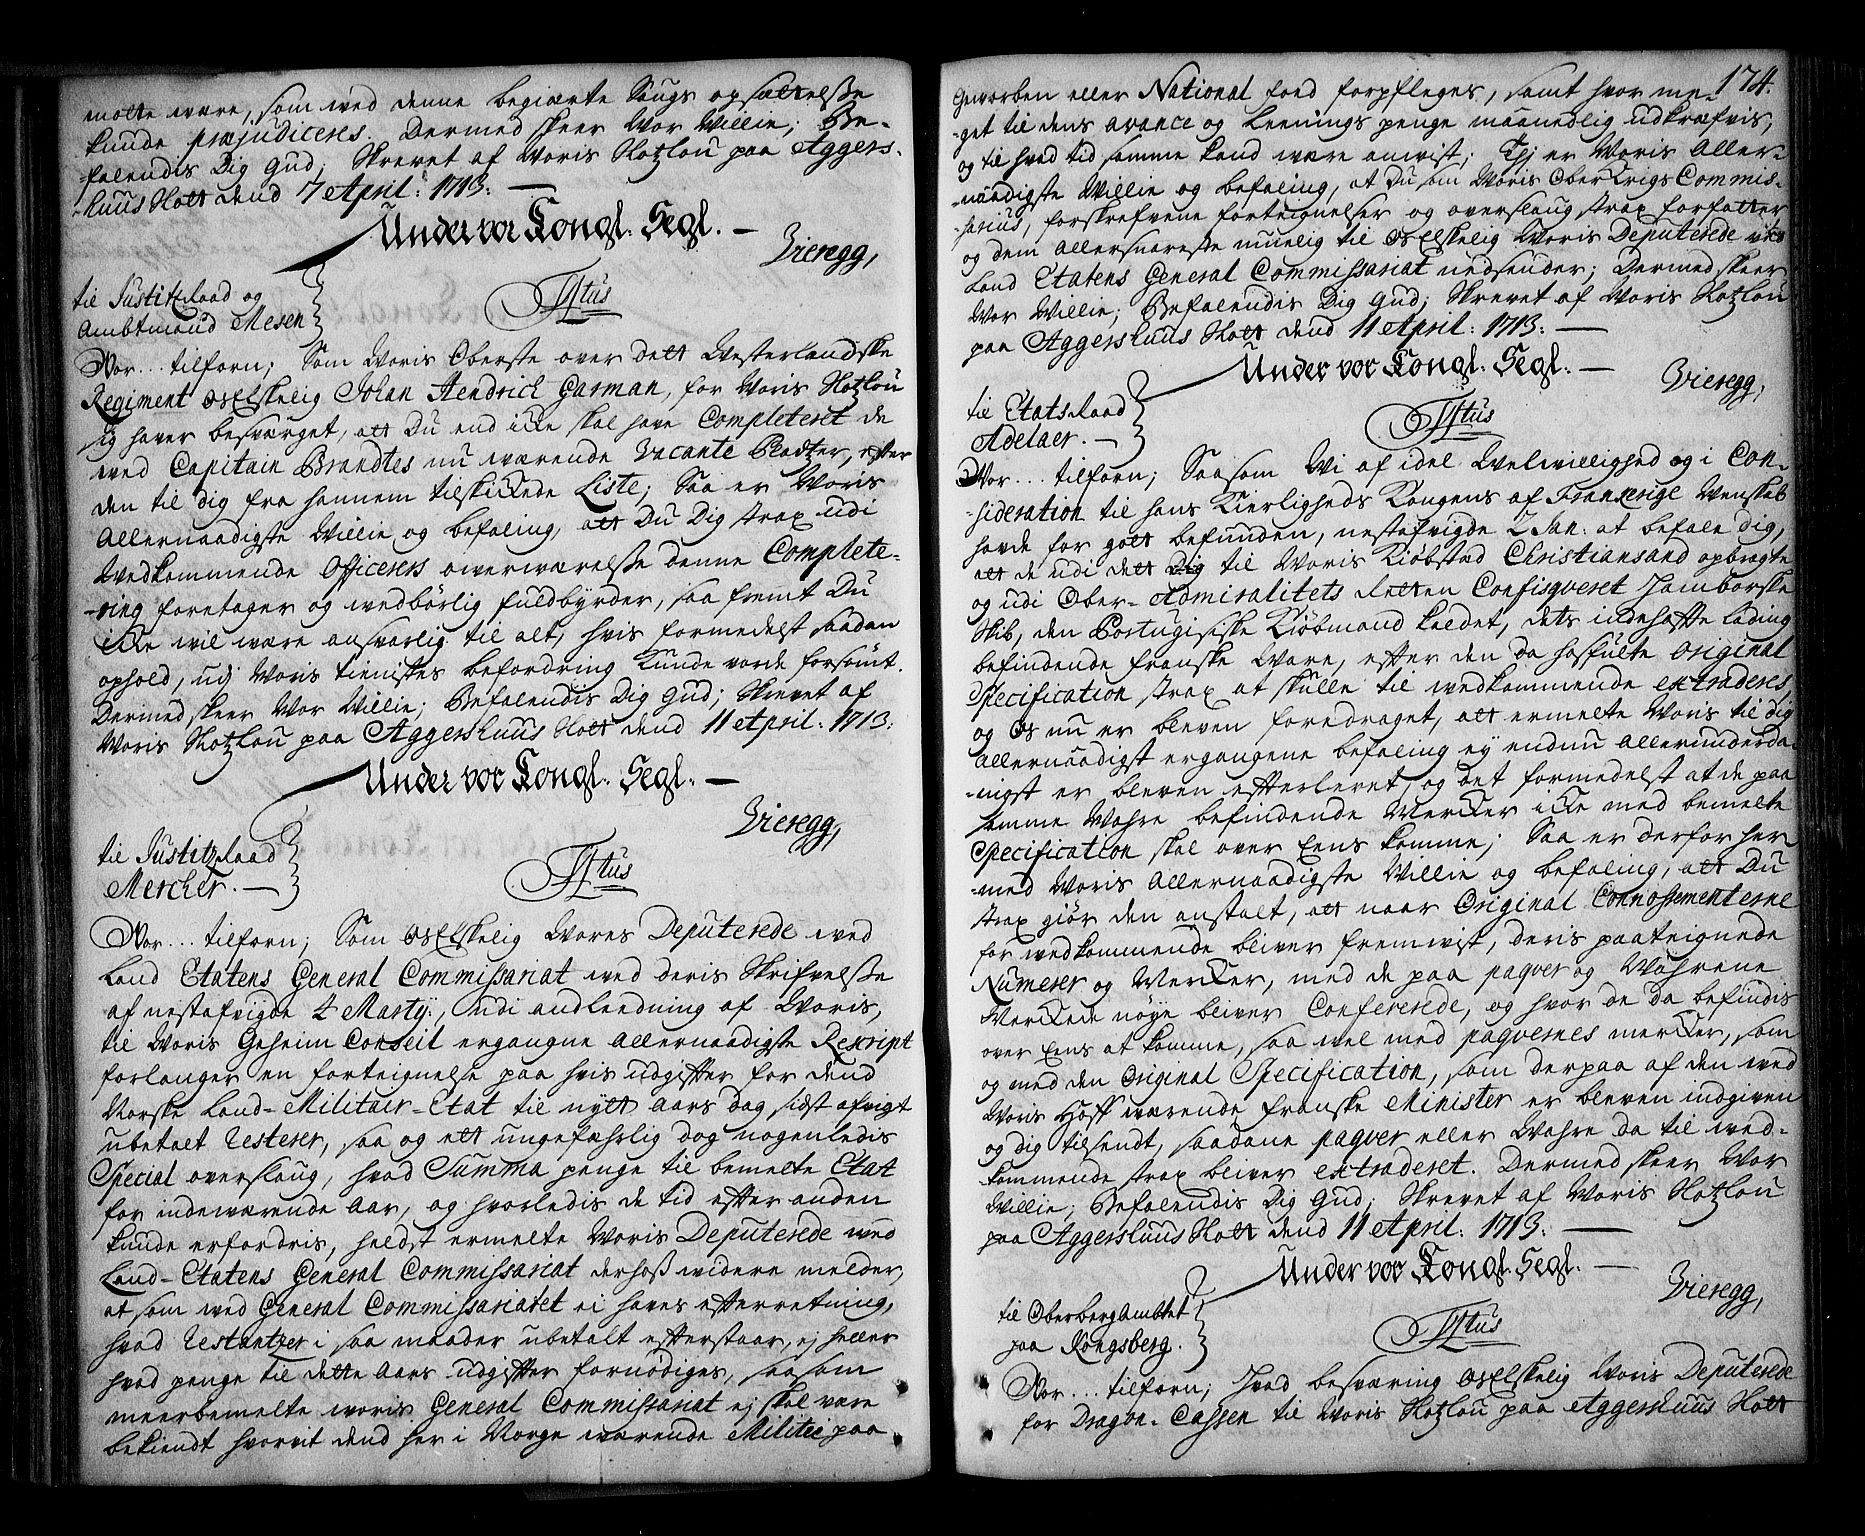 motte være, som ved denne begiærte Saugs opsættelse
kunde præjudiceres. Dermed skeer Vor Villie; Be-
-falendis Dig Gud; Skrevet af Voris Slotzlou paa Aggers-
-huus Slott dend 7 April: 1713. —
Under vor Kongl. Segl. —
Vieregg,
til Justitzraad og
Ambtmand Mesen
Ittus
Vor... tilforn; Som Voris Oberste over dett Vesterlandske
Regiment osElskelig Johan Hendrich Garman, for Voris Slotzlou
sig haver besværget, att Du end icke skal have Completeret de
ved Capitain Brandtes nu værende Vacante Pladtzer, efter
den til dig fra hannem tilskickede Liste; Saa er Voris
Allernaadigste Villie og befaling, att Du Dig strax udi
Vedkommende Officerers overværelse denne Complete-
-ring foretager og vedbørlig fuldbyrder, saa fremt Du
icke vil være ansvarlig til alt, hvis formedelst saadan
ophold, udj Voris tienistes befordring kunde vorde forsømt.
Dermed skeer Vor Villie; Befalendis Dig Gud; Skrevet af
Voris Slotzlou paa Aggershuus Slott dend 11 April: 1713:
Under vor Kongl. Segl. —
Vieregg,
til Justitzraad
Mercher. —
Ittus
Vor... tilforn; Som osElskelig Vores Deputerede ved
Land Etatens General Commissariat ved deris Skrifvelse
af nestafvigde 4 Martij:, udi anleedning af Voris,
til Voris Geheim Conseil ergangne Allernaadigste Rescript
forlanger en forteignelse paa hvis udgifter for dend
Norske Land-Militair-Etat til nytt Aars dag sidst afvigt
ubetalt resterer, saa og ett ungefæhrlig dog nogenledis
Special overslaug, hvad Summa penge til bemelte Etat
for indeværende Aar, og hvorledis de tid efter anden
kunde erfordris, heldst ermelte Voris Deputerede ved
Land-Etatens General Commissariat derhoß videre melder,
at som ved General Commissariatet ei haves efterretning,
hvad Restantzer i saa maader ubetalt efterstaar, ej heller
hvad penge til dette Aars udgifter fornødiges, saasom
meerbemelte voris General Commissariat ej skal være
bekiendt hvorvit dend her i Norge værende Militie paa
174.
Geworben eller National foed forpfleges, samt hvor me-
-get til dens avance og Leenings penge maanedlig udkræfvis,
og til hvad tid samme kand være anvist; Thj er Voris Aller-
-naadigste Villie og befaling, at Du som Voris Ober Krigs Commis-
-sarius, forskrefvene forteignelser og overslaug strax forfatter
og dem allersnareste muelig til osElskelig Voris Deputerede ved
Land Etatens General Commissariat nedsender; Dermed skeer
Vor Villie; Befalendis Dig Gud; Skrevet af Voris Slotzlou
paa Aggershuus Slott dend 11 April: 1713: —
Under vor Kongl. Segl. —
Vieregg,
til Etatsraad
Adelaer. —
Ittus
Vor... tilforn; Saasom Vi af idel Velvillighed og i Con-
-sideration til hans Kierligheds Kongens af Franckerige Venskab
hafde for gott befunden, nestafvigde 2 Jan: at befale dig,
att de udi dett Dig til Voris Kiøbsted Christiansand opbragte
og udi Ober-Admiralitets Retten Confisqveret Hamborske
Skib, den Portugisiske Kiøbmand kaldet, dets indehafte lading
befindende franske Vare, efter den da hosfulte Original
Specification strax at skulle til vedkommende extraderes,
og Os nu er bleven foredraget, att ermelte Voris til dig
Allernaadigst ergangene befaling ey endnu Allerunderda-
-nigst er bleven efterlevet, og det formedelst at de paa
samme Vahre befindende Mercker icke med bemelte
Specification skal over Eens komme; Saa er derfor her-
-med Voris Allernaadigste Villie og befaling, att Du
strax giør den anstalt, att naar Original Connossementerne
for vedkommende bliver fremvist, deris paateignede
Numerer og Mercker, med de paa paqver og Vahrene
Merckede nøye bliver Confererede, og hvor de da befindis
over Eens at komme, saa vel med paqvernes mercker, som
og med den Original Specification, som derpaa af den ved
Voris Hoff værende franske Minister er bleven indgiven
og dig tilsendt, saadane paqver eller Vahre da til ved-
kommende strax bliver extraderet. Dermed skeer Vor
Villie; Befalendis Dig Gud; Skrevet af Voris Slotzlou
paa Aggershuus Slott dend 11 April: 1713: —
Under vor Kongl. Segl. —
Vieregg,
til OberbergAmbtet
paa Kongsberg.
Ittus
Vor... tilforn; Hvad besværing osElskelig Voris Deputerede
for Dragon-Cassen til Voris Slotzlou paa Aggershuus Slott